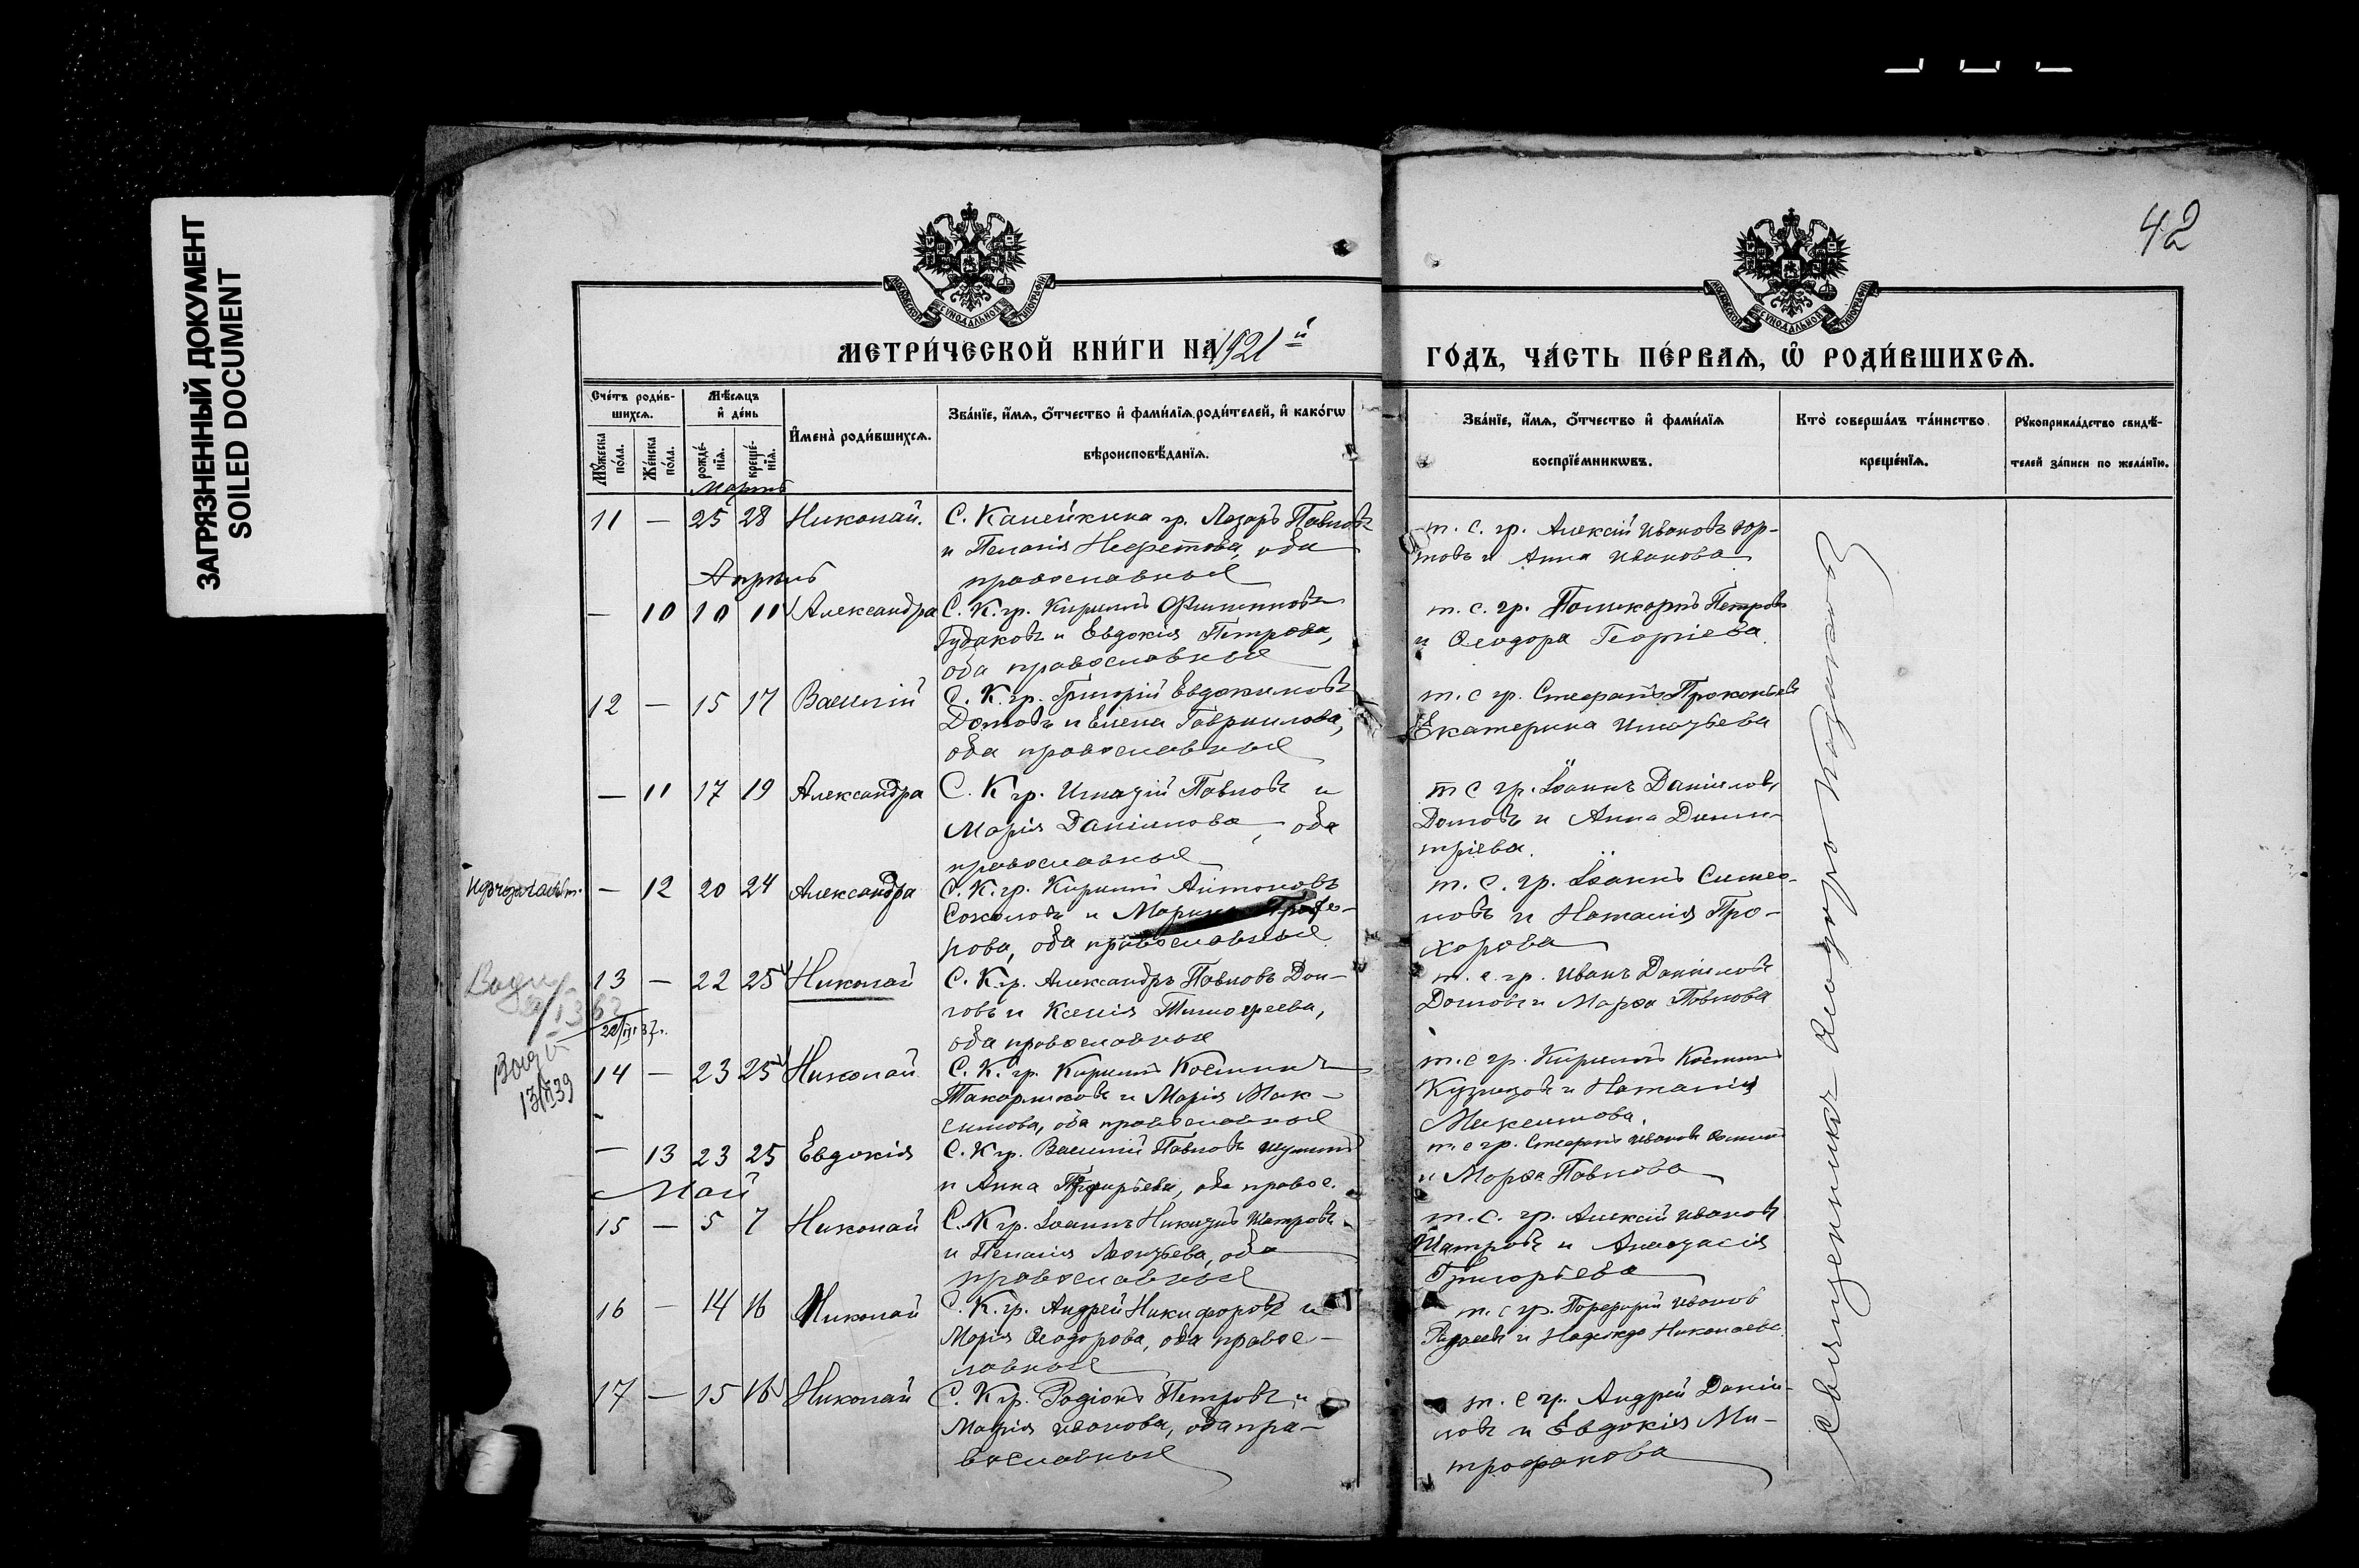 ЗАГРЯЗНЕННЫЙ ДОКУМЕНТ
SOILED DOCUMENT
42
МОСКОВСКОЙ СѴНОДАЛЬНОЙ ТИПОГРАФІИ
МОСКОВСКОЙ СѴНОДАЛЬНОЙ ТИПОГРАФІИ
МЕТРИ́ЧЕСКОЙ КНИ́ГИ НА 1921й
ГО́ДЪ, ЧА́СТЬ ПЕ́РВАѦ, Ѽ РОДИ́ВШИХСѦ.
Сче́тъ роди́в-
шихсѧ.
Мꙋ́жеска по́ла.
Же́нска по́ла.
Мѣ́сѧцъ и҆ де́нь
рожде́нїѧ.
креще́нїѧ.
И҆мена̀ роди́вшихсѧ.
Зва́нїе, и҆́мѧ, ѻ҆́тчество и҆ фами́лїѧ роди́телей, и҆ како́гѡ
вѣроисповѣ́данїѧ.
Зва́нїе, и҆́мѧ, ѻ҆́тчество и҆ фами́лїѧ
воспрїе́мникѡвъ.
Кто̀ соверша́лъ та́инство
креще́нїѧ.
Рꙋкоприкла́дство свидѣ́-
телей за́писи по жела́нїю.
Мартъ
11 — 25 28 Николай. С. Канейкина гр. Лазарь Павловъ
и Пелагія Неѳретова, оба
православные
т. с. гр. Алексій Ивановъ
и Анна Иванова
Апрѣль
— 10 10 11 Александра С. К. гр. Кириллъ Филипповъ
Гудаковъ и Евдокія Петрова,
оба православные
т. с. гр. Поликарпъ Петровъ
и Ѳеодора Георгіева.
12 — 15 17 Василій С. К. гр. Григорій Евдокимовъ
Долговъ и Елена Гавриилова,
оба православные
т. с гр. Стефанъ Прокопьевъ
Екатерина Игнатьева
— 11 17 19 Александра С. К гр. Игнатій Павловъ и
Марія Даніилова, оба
православные
т с гр. Іоаннъ Даніиловъ
Долговъ и Анна Дими-
тріева.
— 12 20 24 Александра С. К. гр. Кириллъ Антоновъ
Соколовъ и Марина
рова, оба православные
т. с. гр. Іоаннъ Симео-
новъ и Наталія Про-
хорова
13 — 22 25 Николай С. К гр. Александръ Павловъ Дол-
говъ и Ксенія Тимоѳеева,
оба православные
т. с. гр. Иванъ Даніиловъ
Долговъ и Марѳа Павлова
13/II 39
14 — 23 25 Николай С. К. гр. Кириллъ Косминъ
и Марія Мак-
симова, оба православные
т. с гр. Кириллъ Косминъ
и Наталія
Максимова.
— 13 23 25 Евдокія С. К гр. Василій Павловъ
и Анна Григорьева, оба правос.
т. с гр. Стефанъ Ивановъ
и Марѳа Павлова
Май
15 — 5 7 Николай С. К гр. Іоаннъ Никитинъ Шатровъ
и Пелагія Леонтьева, оба
православные
т. с. гр. Алексій Ивановъ
Шатровъ и Анастасія
Григорьева
16 — 14 16 Николай С. К. гр. Андрей Никифоровъ и
Марія Ѳеодорова, оба правос-
лавные
т. с гр. Порфирій Ивановъ
и Надежда Николаева
17 — 15 16 Николай С. К гр. Родіонъ Петровъ и
Марія Иванова, оба пра-
вославные
т. с гр. Андрей Даніи-
ловъ и Евдокія Ми-
трофанова
Священникъ Ѳеодоръ